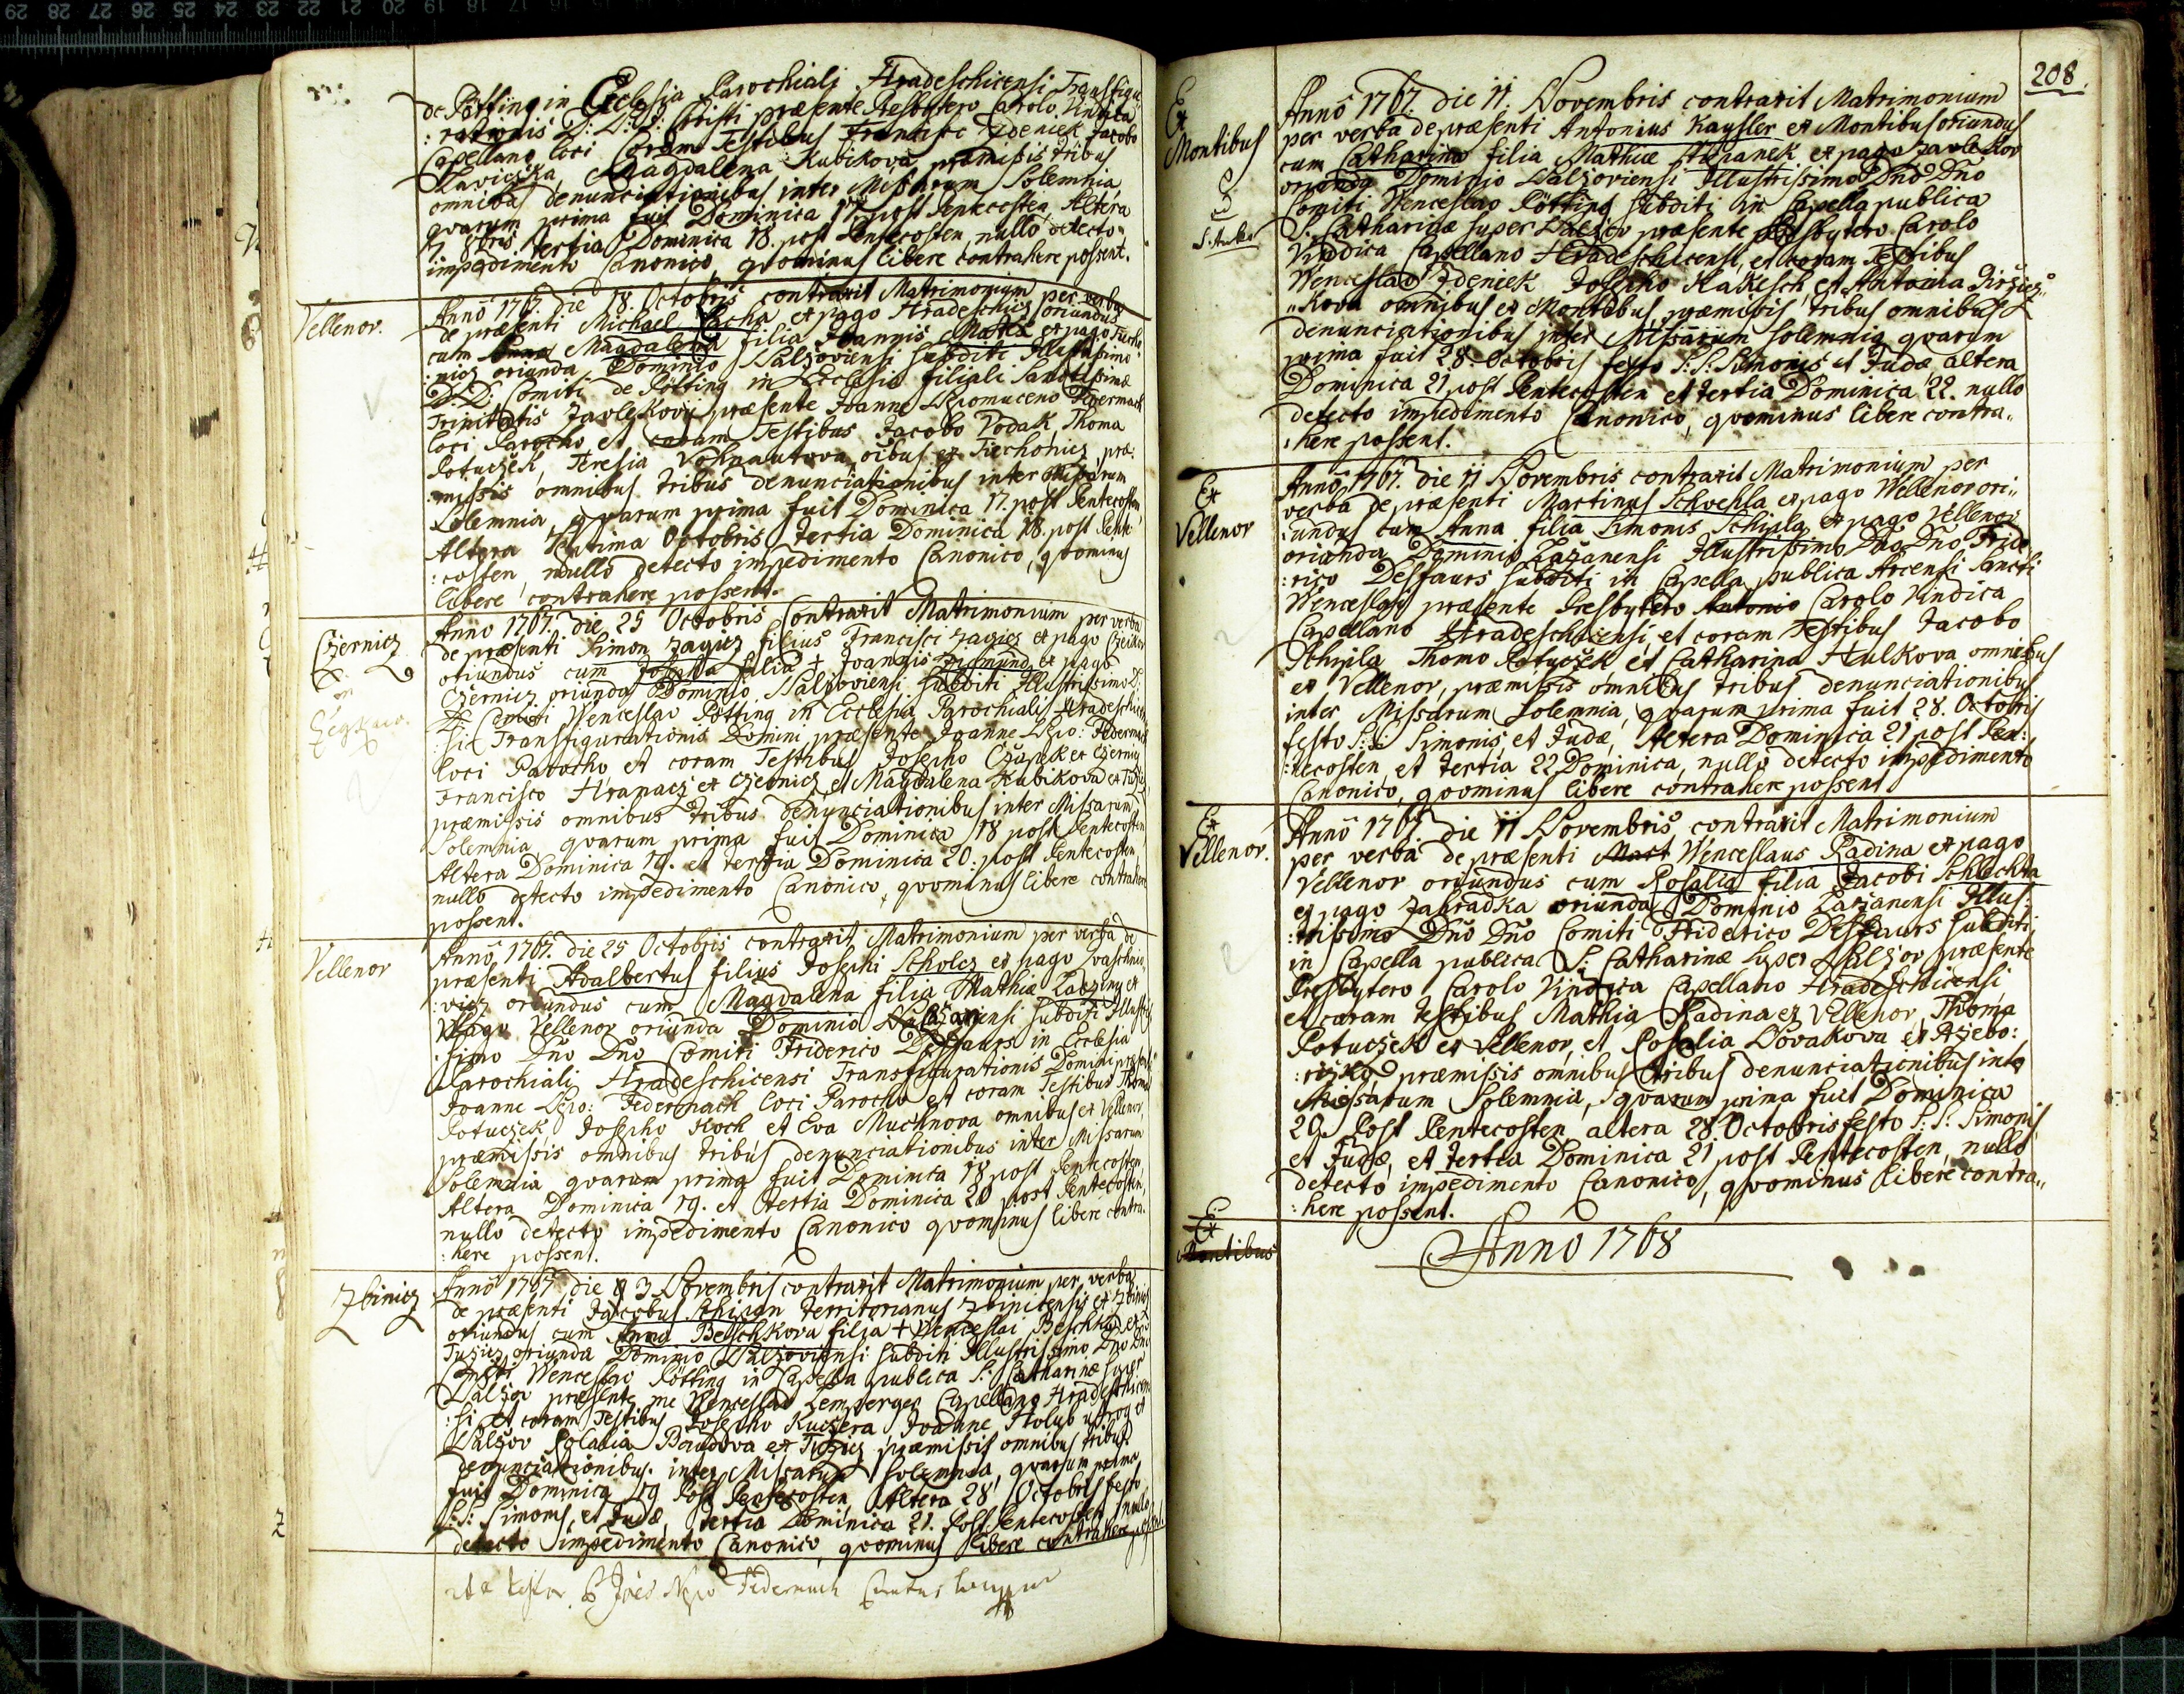 de Pötting in Ecclesia Parochiali Hradeschicensi Transfigu
:rationis D: N: J: Christi præsente Presbytero Carolo Vindica
Capellano loci Coram Testibus Francisco Zdeniek Jacobo
Magdalena Kubikova, præmissis tribus
omnibus denunciationibus inter Missarum Solemnia
quarum prima fuit Dominica 17 post Pentecosten, Altera
7 8bris tertia Dominica 18. post Pentecosten, nullo detecto
impedimento Canonico, quominus libere contrahere possent.
Vellenor.
Anno 1767. die 18. Octobris contraxit Matrimonium per verba
de præsenti Michael Pacha ex pago Hradeschicz oriundus
cum Magdalena filia Joannis ex pago
:nicz oriunda Dominio Nalzoviensi subditi Illustrissimo
D: D: Comiti de Pötting in Ecclesia filiali Sanctissimæ
Trinitatis Zavlekovii præsente Joanne Nepomuceno Federmach
loci Parocho et coram Testibus Jacobo Vodak, Thoma
Potuczek, Teresia Vohnautova, oibus ex Tiechonicz, præ:
:missis omnibus tribus denunciationibus inter Missarum
Solemnia, quarum prima fuit Dominica 17. post Pentecosten,
Altera Septima Octobris, tertia Dominica 18. post Pente
:costen, nullo detecto impedimento Canonico, quominus
libere contrahere possent.
Czernicz
Anno 1767. die 25 Octobris Contraxit Matrimonium per verba
de præsenti Simon Zagicz filius Francisci Zagicz ex pago
oriundus cum filia + Joannis Zigmund ex pago
Czernicz oriunda Dominio Nalzoviensi subditi Illustrissimo D:
D: Comiti Wenceslao Pötting in Ecclesia Parochiali Hradeschicen
:si Transfigurationis Domini præsente Joanne Nepo: Federmach
loci Parocho et coram Testibus Josepho Czapek ex Czernicz
Francisco Hranacz ex Czernicz, et Magdalena Kubikova ex
præmissis omnibus tribus denunciationibus inter Missarum
Solemnia, quarum prima fuit Dominica 18 post Pentecosten
Altera Dominica 19. et tertia Dominica 20. post Pentecosten
nullo detecto impedimento Canonico, quominus libere contrahere
possent.
Vellenor
Anno 1767. die 25 Octobris contraxit Matrimonium per verba de
præsenti Adalbertus filius Josephi Scholcz ex pago
:vicz oriundus cum Magdalena filia Mathiæ ex
Pago Vellenor oriunda Dominio subditi Illustris
:simo Dno Dno Comiti Friderico Desfaurs in Ecclesia
Parochiali Hradeschicensi Transfigurationis Domini præsente
Joanne Nepo: Federmach loci Parocho et coram Testibus Thoma
Potuczek Josepho Koch et Eva Muchnova omnibus ex Vellenor,
præmissis omnibus tribus denunciationibus inter Missarum
Solemnia quarum prima fuit Dominica 18 post Pentecosten,
Altera Dominica 19. et tertia Dominica 20 post Pentecosten,
nullo detecto impedimento Canonico quominus libere contra:
:here possent.
Zbinicz
Anno 1767 die 3 Novembris contraxit Matrimonium per verba
de præsenti Jacobus Territorianus Zbinicensis ex Zbinicz
oriundus cum Anna Beschkova filia + Wenceslai Beschka ex
oriunda Dominio Nalzoviensi subditi Illustrissimo Dno Dno
Comiti Wenceslao Pötting in Capella publica S: Catharinæ super
Nalzov præsente me Wenceslao Capellano Hradeschicen
:si et coram Testibus Josepho Kuczera, Joanne Holub utrog ex
Nalzov præmissis omnibus tribus
denunciationibus inter Missarum Solemnia, quarum prima
fuit Dominica 19 Post Pentecosten, Altera 28 Octobris festo
S: S: Simonis, et Judæ, tertia Dominica 21. Post Pentecosten, nullo
detecto impedimento Canonico, quominus libere contrahere possent.
Joes Nepo Federmach
208.
Ex
Montibus
S. Anna
Anno 1767. die 11. Novembris contraxit Matrimonium
per verba de præsenti Antonius Kaysler ex Montibus oriundus
cum Catharina filia Mathiæ Stiepanek ex pago Zavlekov
oriunda Dominio Nalzoviensi Illustrissimo Dno Dno
Comiti Wenceslao Pötting subditi in Capella publica
S: Catharinæ super Nalzov præsente Presbytero Carolo
Vindica Capellano Hradeschicensi, et coram Testibus
Wenceslao Zdeniek Josepho Kakesch, et Antonia
:kova omnibus ex Montibus, præmissis tribus omnibus
denunciationibus inter Missarum solemnia quarum
prima fuit 28. Octobris festo S: S: Simonis et Judæ altera
Dominica 21 post Pentecosten et tertia Dominica 22. nullo
detecto impedimento Canonico, quominus libere contra„
:here possent.
Ex
Vellenor
Anno 1767. die 11 Novembris contraxit Matrimonium per
verba de præsenti Martinus Schvehla ex pago Vellenor ori„
:undus cum Anna filia Simonis Schipla ex pago Vellenor
oriunda Dominio Lazanensi Illustrissimo Dno Dno Fride
:rico Desfaurs subditi in Capella publica Arcensi Sancti
Wenceslai præsente Presbytero Antonio Carolo Vindica
Capellano Hradeschicensi, et coram Testibus Jacobo
Schipla Thoma Potuczek et Catharina Hulkova omnibus
ex Vellenor, præmissis omnibus tribus denunciationibus
inter Missarum Solemnia, quarum prima fuit 28. Octobris
festo S: S: Simonis, et Judæ, Altera Dominica 21 post Pen:
:tecosten, et tertia 22 Dominica, nullo detecto impedimento
Canonico, quominus libere contrahere possent.
Ex
Vellenor.
Anno 1767. die 11 Novembris contraxit Matrimonium
per verba de præsenti Mart Wenceslaus Radina ex pago
Vellenor oriundus cum Rosalia filia Jacobi Schlechta
ex pago Zahradka oriunda Dominio Lazanensi Illus:
:trissimo Dno Dno Comiti Friderico Desfaurs subditi
in Capella publica S: Catharinæ super Nalzov præsente
Presbytero Carolo Vindica Capellano Hradeschicensi,
et coram testibus Mathia Radina ex Vellenor, Thoma
Potuczek ex Vellenor, et Rosalia Novakova ex
præmissis omnibus tribus denunciationibus inter
Missarum Solemnia, quarum prima fuit Dominica
20 Post Pentecosten, altera 28. Octobris festo S: S: Simonis
et Judæ, et tertia Dominica 21 post Pentecosten, nullo
detecto impedimento Canonico, quominus libere contra„
:here possent.
Ex
Montibus
Anno 1768